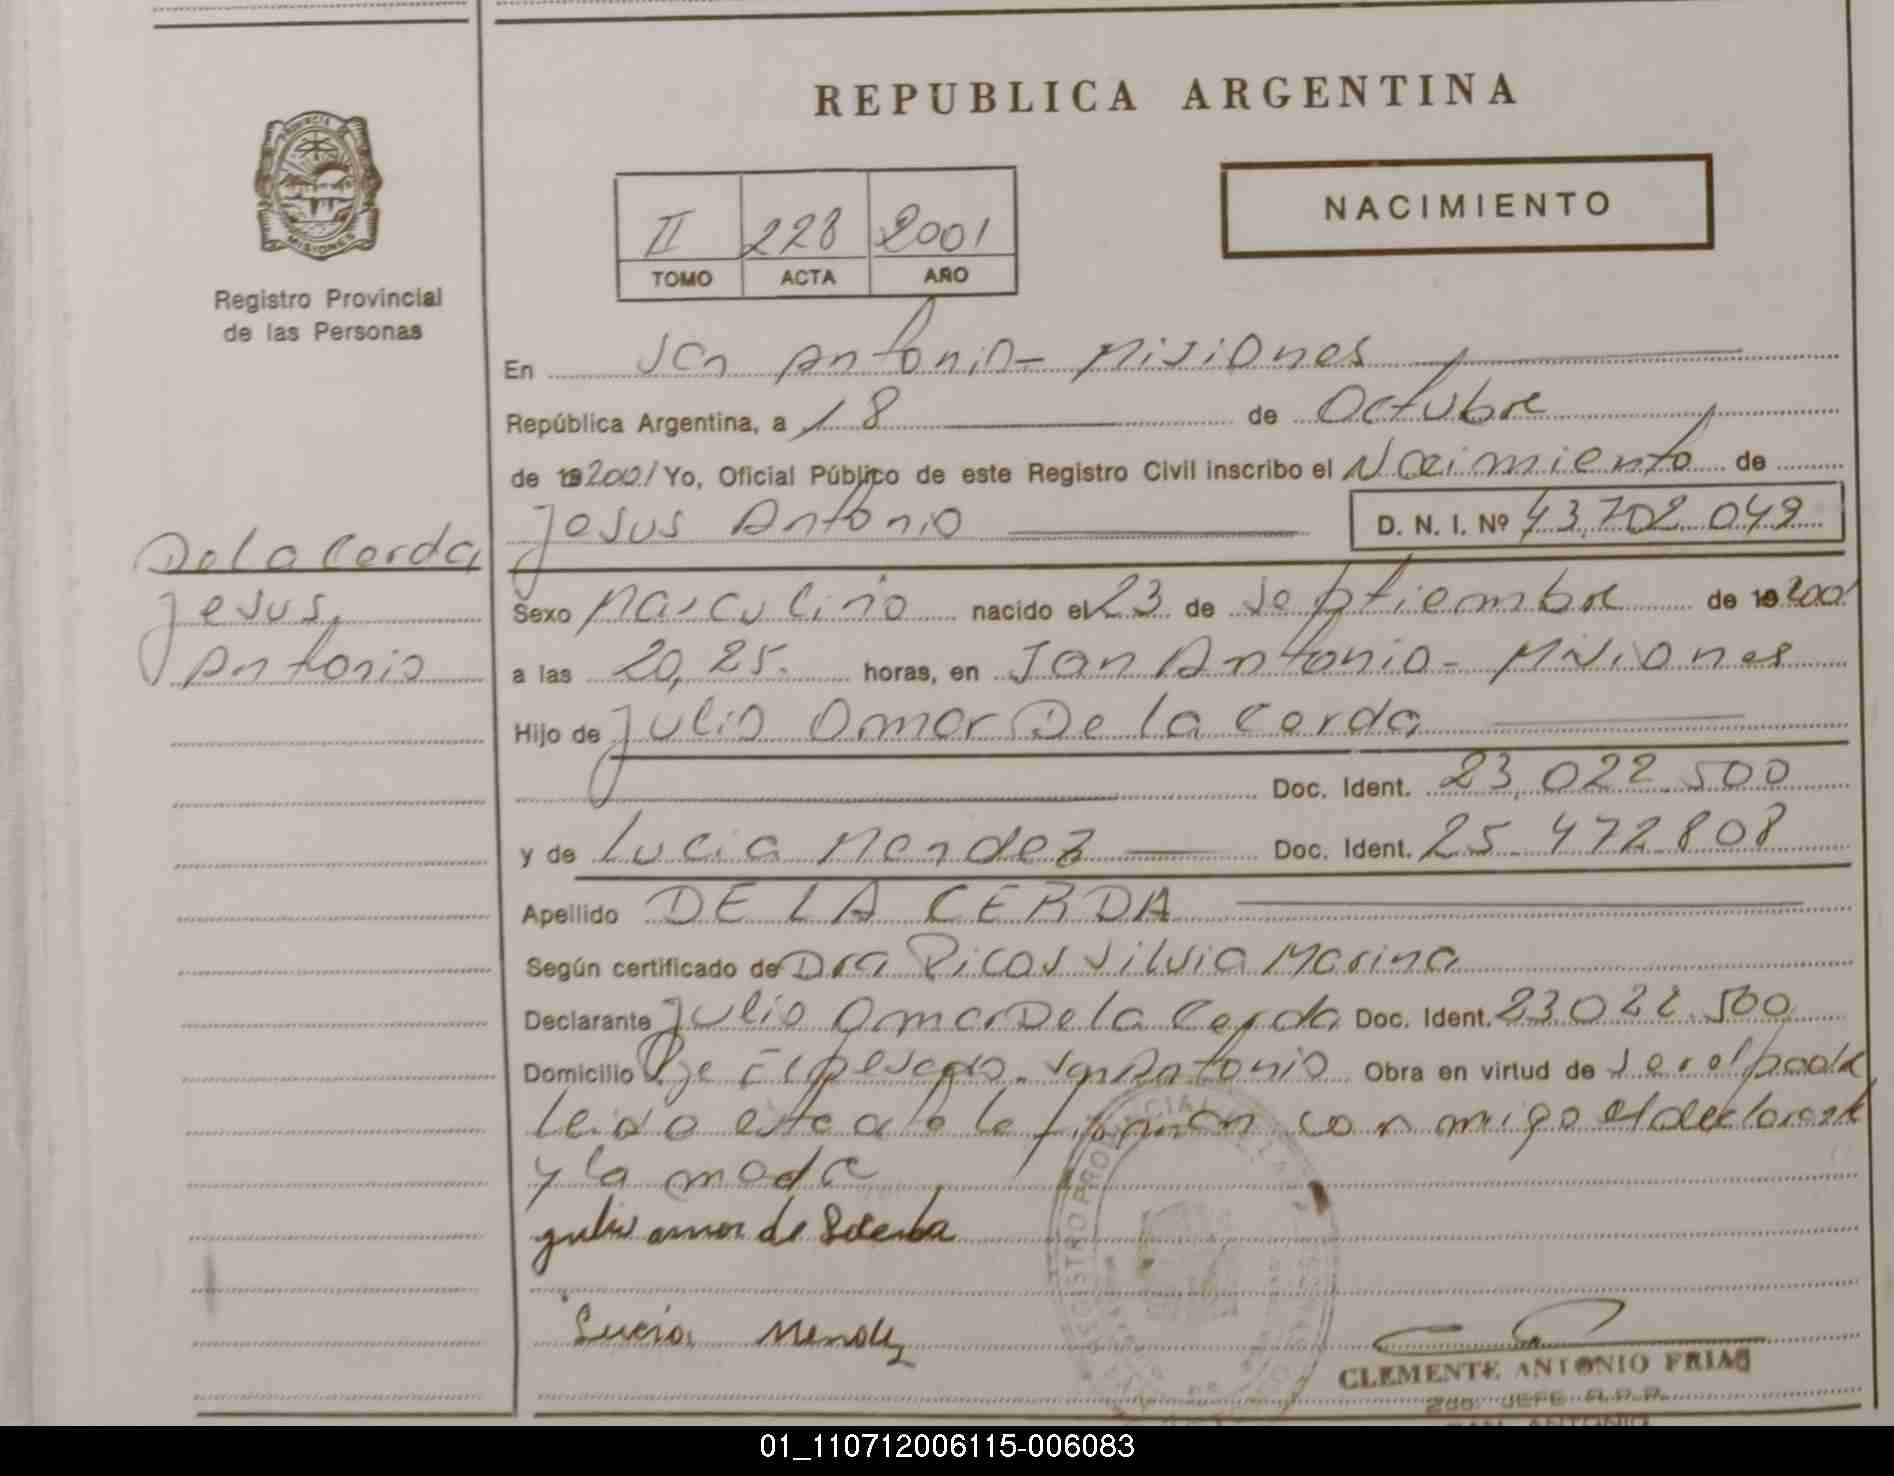 REPUBLICA ARGENTINA
PROVINCIA
MISIONES
Registro Provincial
de las Personas
NACIMIENTO
II 228 2001
TOMO ACTA AÑO
En San Antonio - Misiones
República Argentina, a 18 de Octubre
de 19 2001 Yo, Oficial Público de este Registro Civil inscribo el Nacimiento de
Jesus Antonio D. N. I. Nº 43.702.049
De la Cerda
Jesus
Antonio
Sexo Masculino nacido el 23 de Septiembre de 19 2001
a las 20,25. horas, en San Antonio - Misiones
Hijo de Julio Omar De la Cerda
Doc. Ident. 23.022.500
y de Lucia Mendez Doc. Ident. 25.472.808
Apellido DE LA CERDA
Según certificado de Dra Picos Silvia Marina
Declarante Julio Omar De la Cerda Doc. Ident. 23.022.500
Domicilio San Antonio Obra en virtud de ser el padre
Leida esta acta la firman conmigo el declarante
y la madre
julio omar de
Lucia Mendez
REGISTRO PROVINCIAL
CLEMENTE ANTONIO FRIAS
2do. JEFE R.P.P.
SAN ANTONIO
01_110712006115-006083